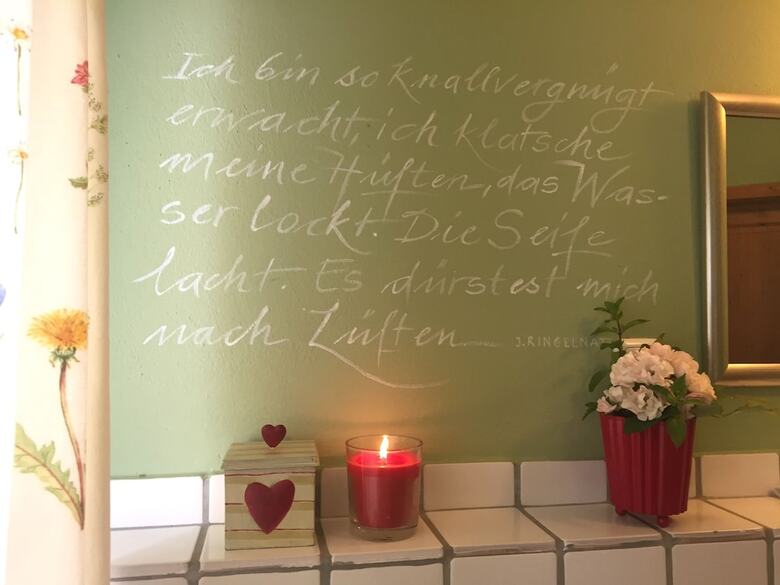 Ich bin so knallvergnügt
erwacht, ich klatsche
meine Hüften, das Was-
ser lockt. Die Seife
lacht. Es dürstest mich
nach Lüften
J. RINGELNA